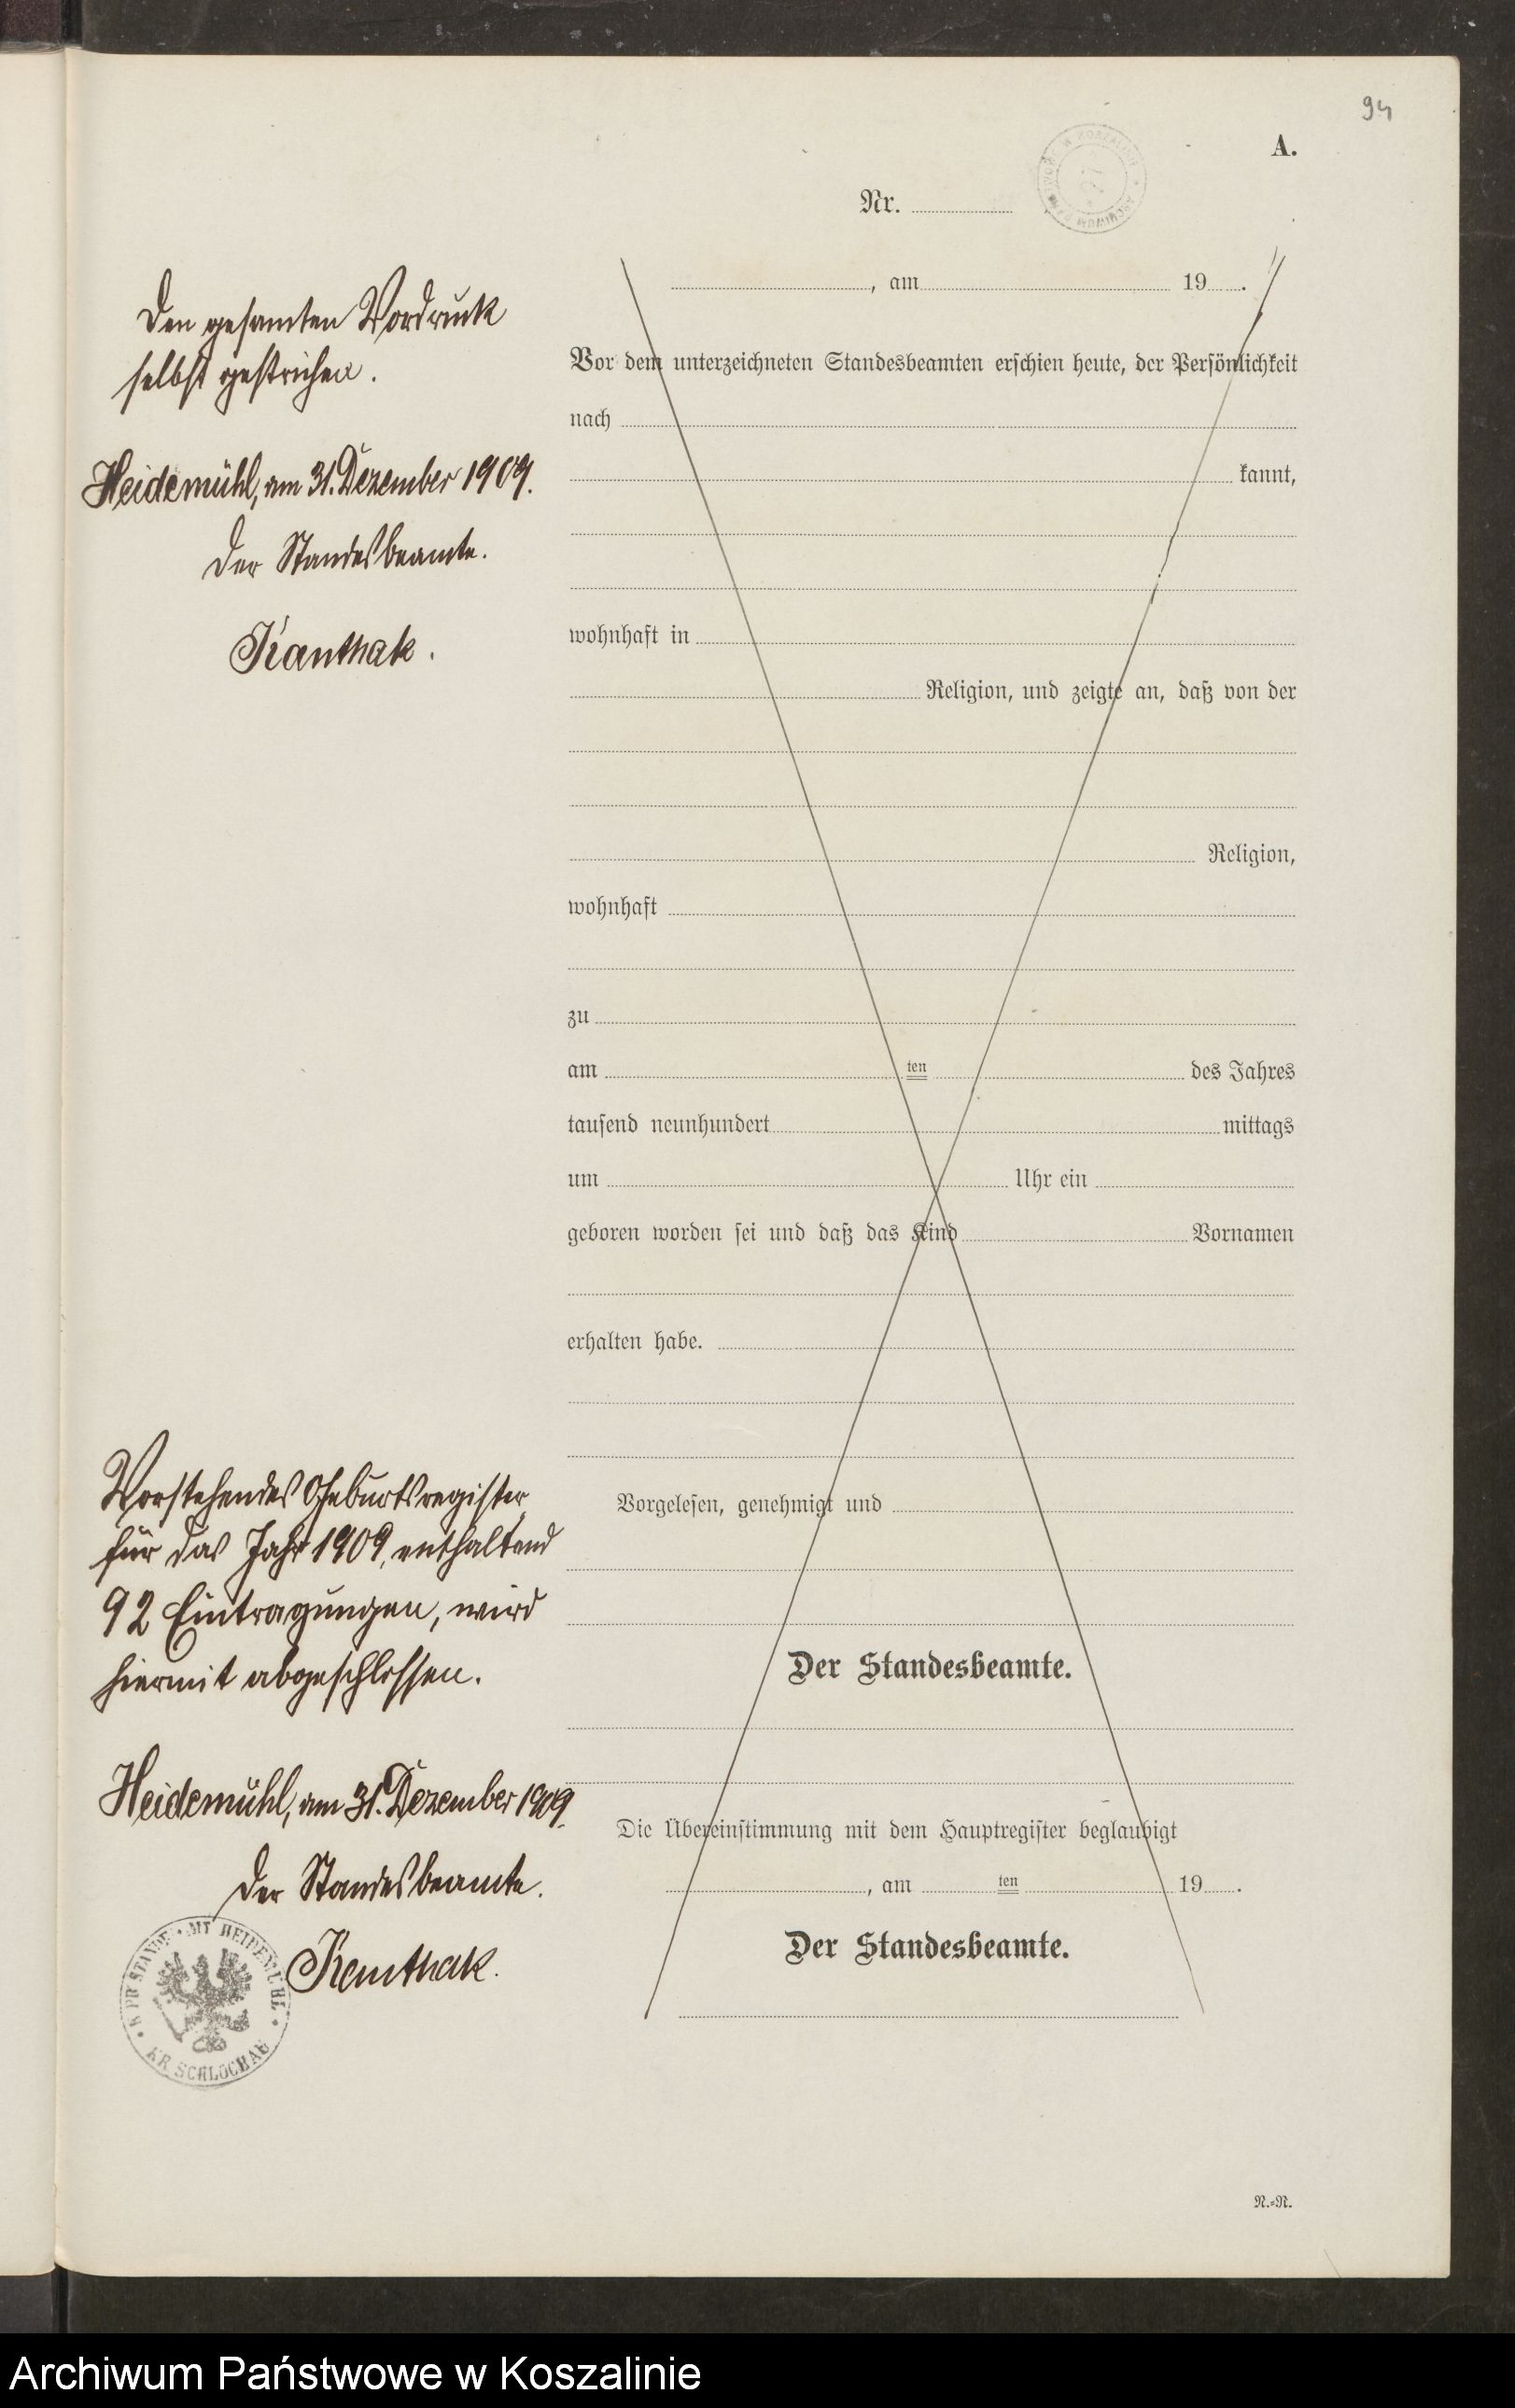 94
A.
Nr.
Den gesamten Vordruck
selbst gestrichen.
Heidemühl, am 31. Dezember 1909.
Der Standesbeamte.
Kanthak.
, am 19 .
Vor dem unterzeichneten Standesbeamten erschien heute, der Persönlichkeit
nach
kannt,
wohnhaft in
Religion, und zeigte an, daß von der
Religion,
wohnhaft
zu
am ten des Jahres
tausend neunhundert mittags
um Uhr ein
geboren worden sei und daß das Kind Vornamen
erhalten habe.
Vorgelesen, genehmigt und
Der Standesbeamte.
Die Übereinstimmung mit dem Hauptregister beglaubigt
, am ten 19 .
Der Standesbeamte.
Vorstehendes Geburtsregister
für das Jahr 1909, enthaltend
92 Eintragungen, wird
hiermit abgeschlossen.
Heidemühl, am 31. Dezember 1909.
Der Standesbeamte.
Kanthak.
KR. SCHLOCHAU
R.=N.
Archiwum Państwowe w Koszalinie